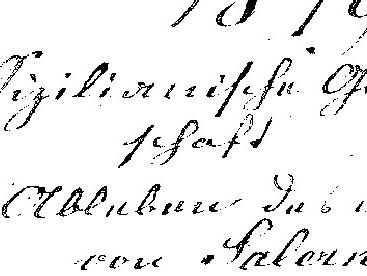 Sizilianische Ge
schaft
Ableben des
von Salern